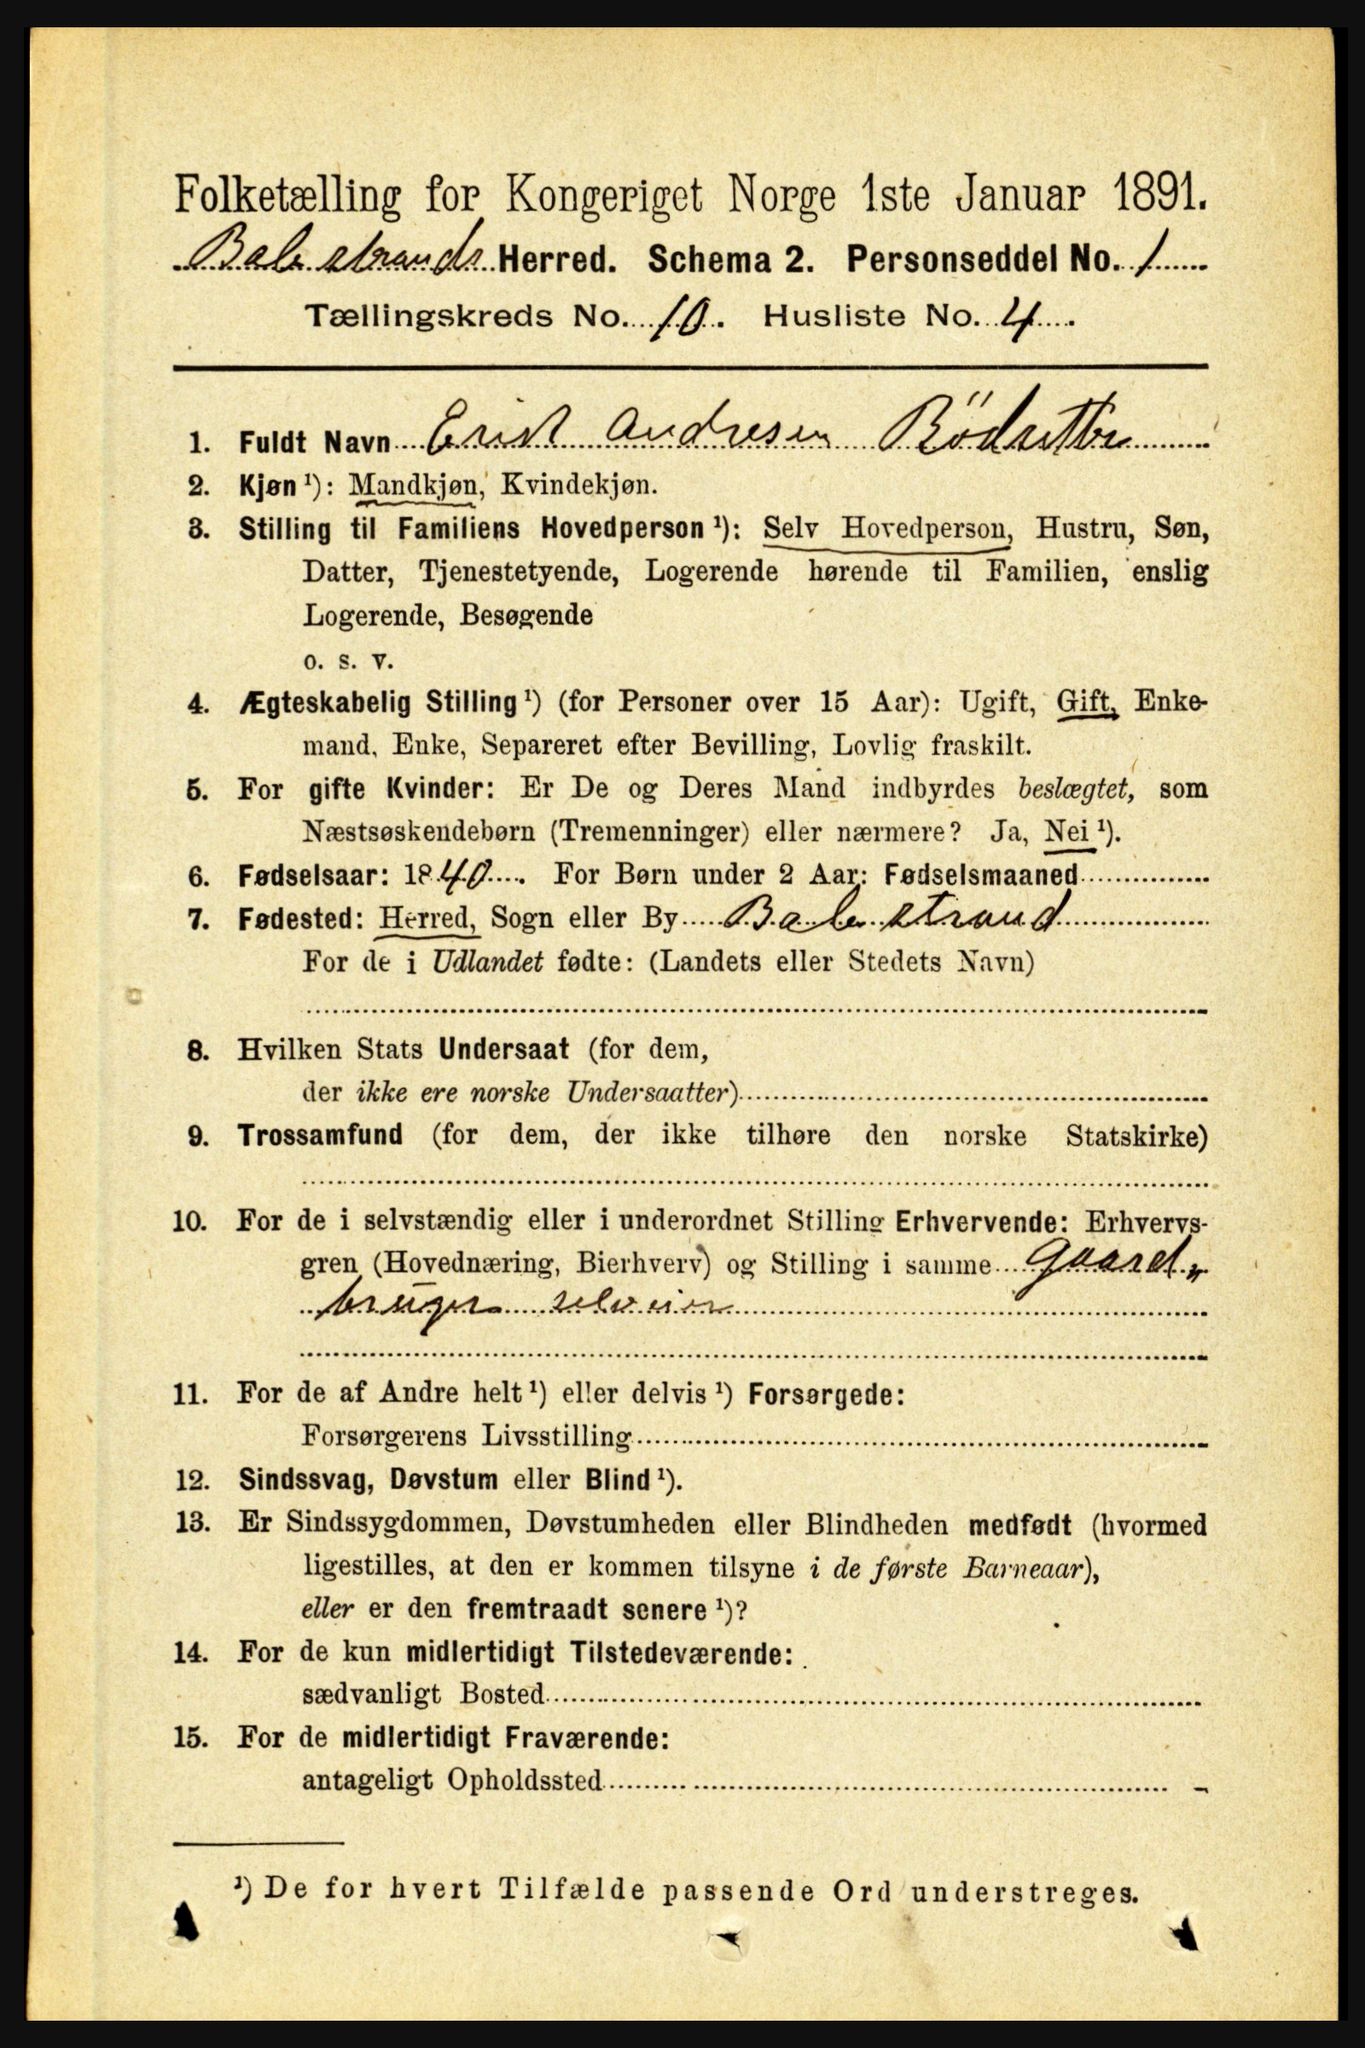 Folketælling for Kongeriget Norge 1ste Januar 1891.
Balestrands Herred. Schema 2. Personseddel No. 1
Tællingskreds No. 10. Husliste No. 4.
1. Fuldt Navn Erik Andresen
2. Kjøn ¹): Mandkjøn, Kvindekjøn.
3. Stilling til Familiens Hovedperson ¹): Selv Hovedperson, Hustru, Søn,
Datter, Tjenestetyende, Logerende hørende til Familien, enslig
Logerende, Besøgende
o. s. v.
4. Ægteskabelig Stilling ¹) (for Personer over 15 Aar): Ugift, Gift, Enke-
mand, Enke, Separeret efter Bevilling, Lovlig fraskilt.
5. For gifte Kvinder: Er De og Deres Mand indbyrdes beslægtet, som
Næstsøskendebørn (Tremenninger) eller nærmere? Ja, Nei ¹).
6. Fødselsaar: 1840. For Børn under 2 Aar: Fødselsmaaned
7. Fødested: Herred, Sogn eller By Balestrand
For de i Udlandet fødte: (Landets eller Stedets Navn)
8. Hvilken Stats Undersaat (for dem,
der ikke ere norske Undersaatter)
9. Trossamfund (for dem, der ikke tilhøre den norske Statskirke)
10. For de i selvstændig eller i underordnet Stilling Erhvervende: Erhvervs-
gren (Hovednæring, Bierhverv) og Stilling i samme Gaard„
bruger selveier
11. For de af Andre helt ¹) eller delvis ¹) Forsørgede:
Forsørgerens Livsstilling
12. Sindssvag, Døvstum eller Blind ¹).
13. Er Sindssygdommen, Døvstumheden eller Blindheden medfødt (hvormed
ligestilles, at den er kommen tilsyne i de første Barneaar),
eller er den fremtraadt senere ¹)?
14. For de kun midlertidigt Tilstedeværende:
sædvanligt Bosted
15. For de midlertidigt Fraværende:
antageligt Opholdssted
¹) De for hvert Tilfælde passende Ord understreges.